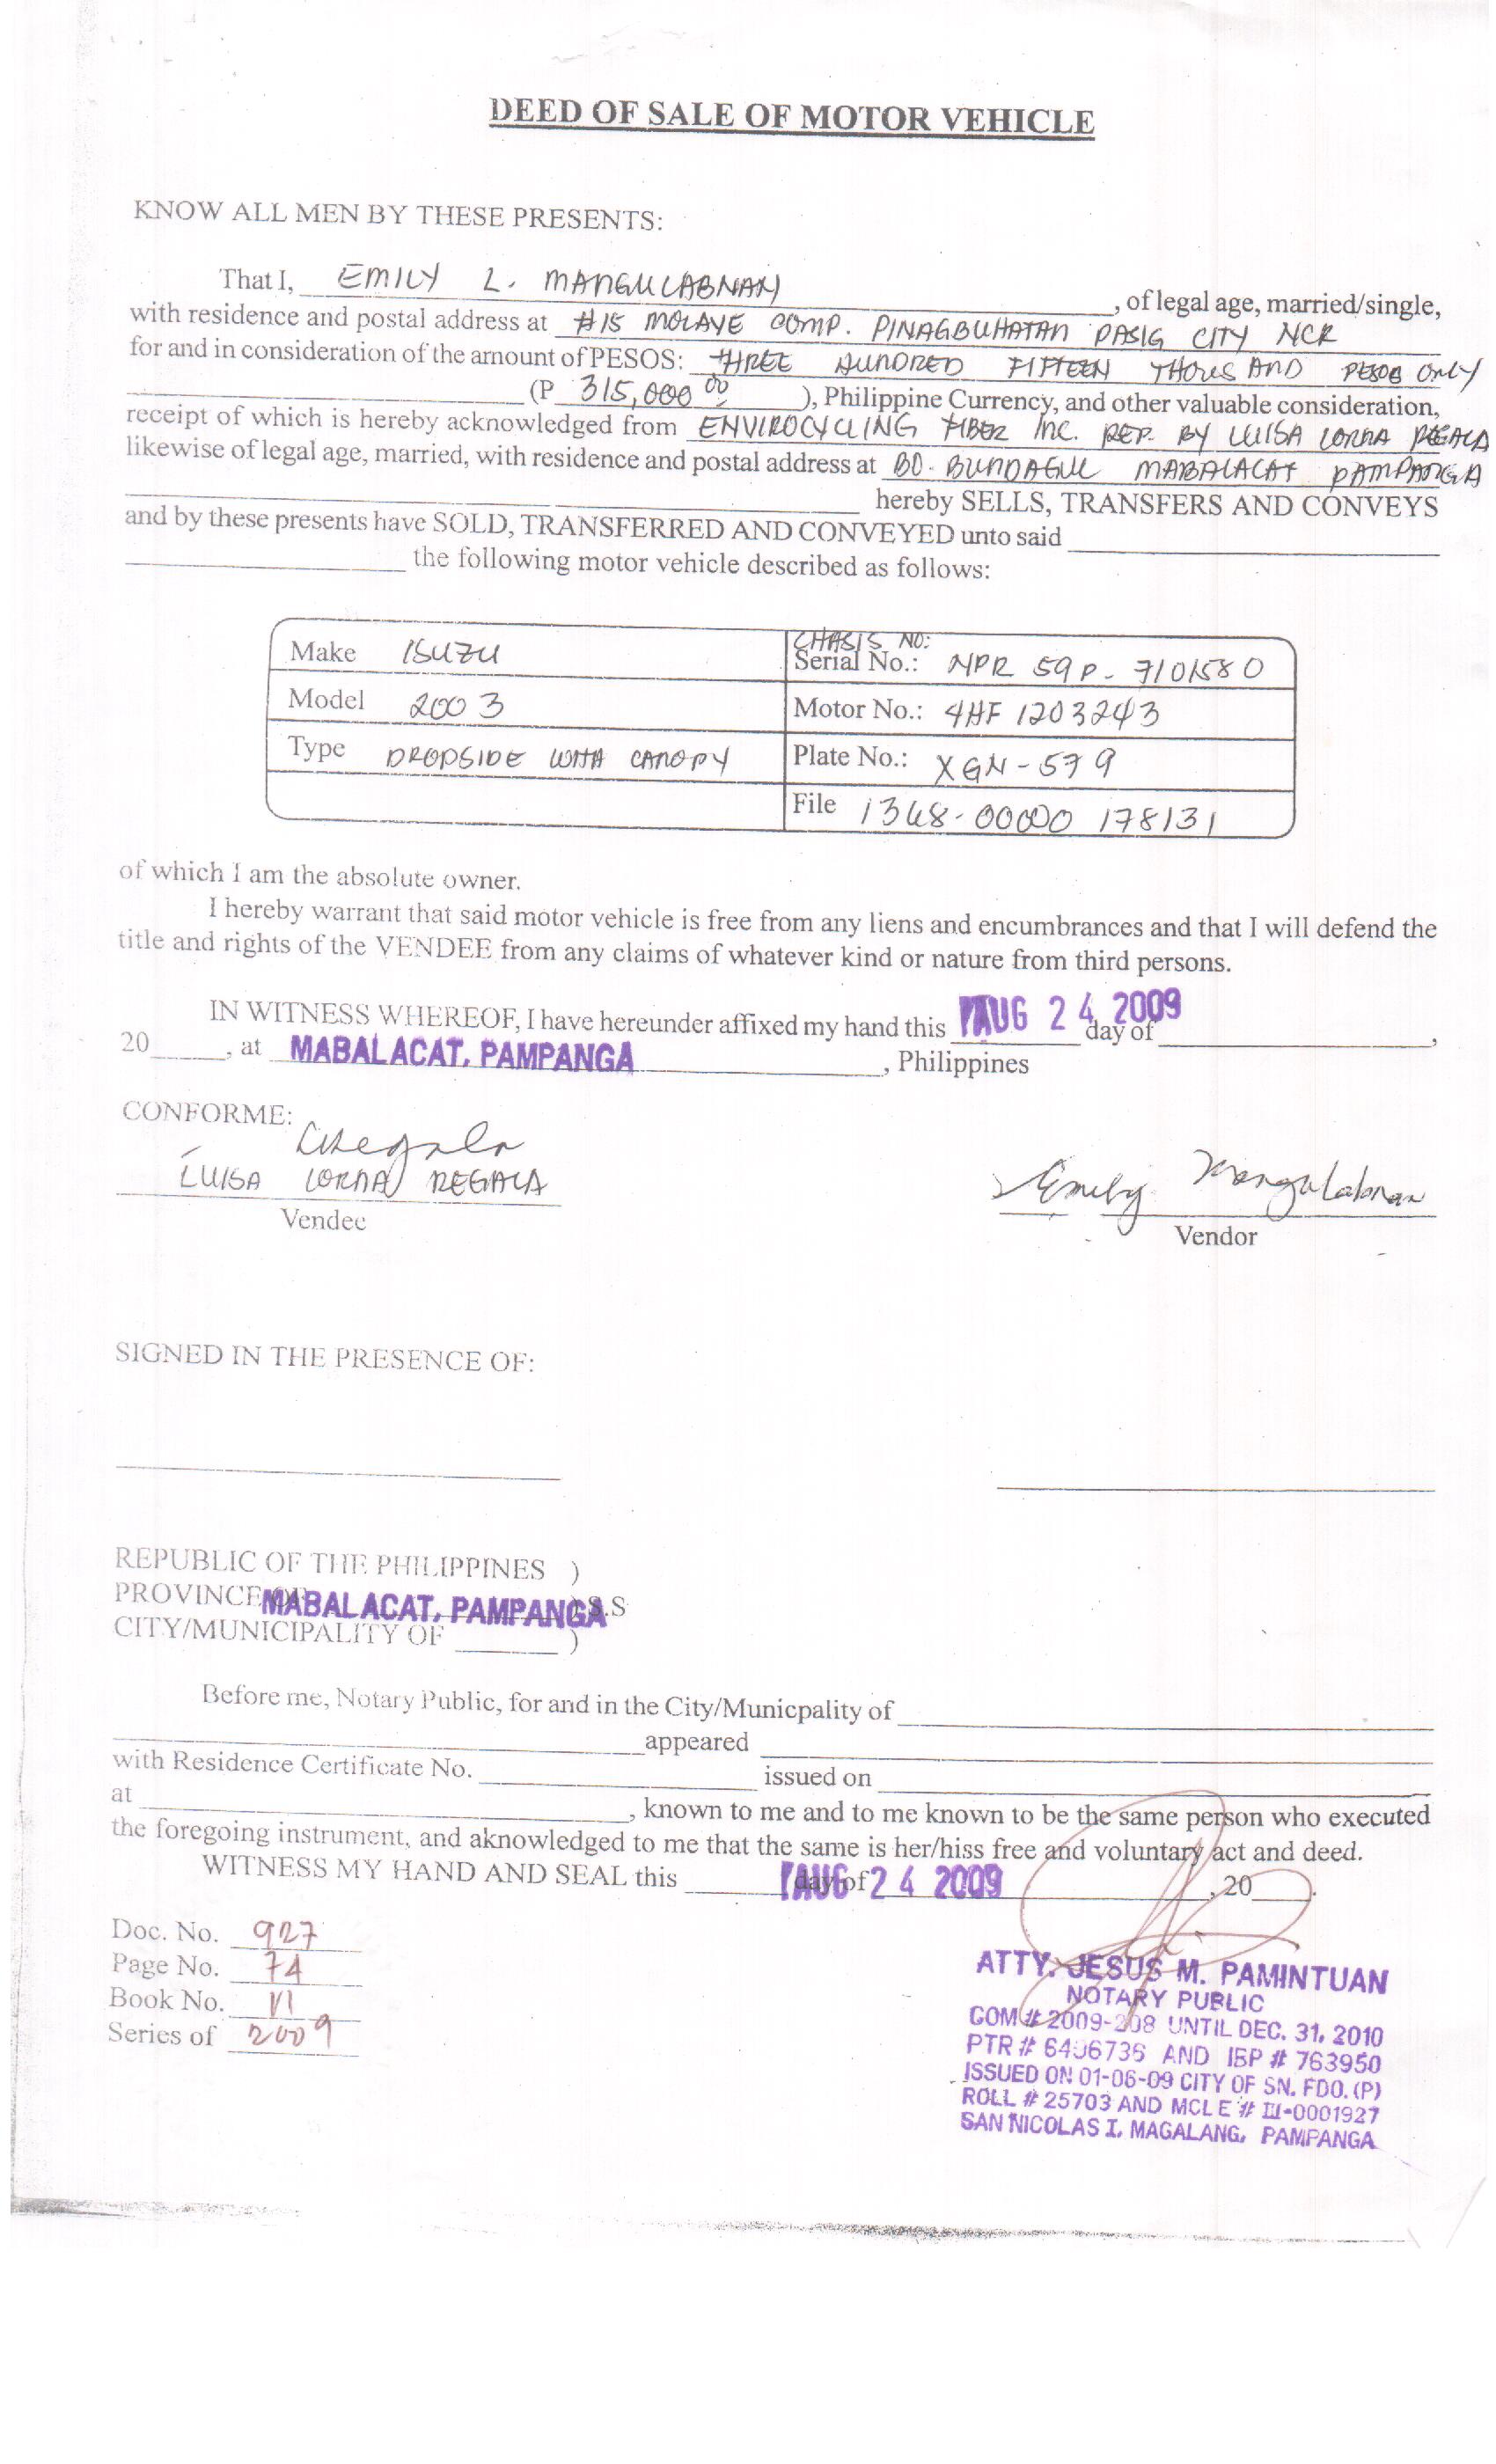 DEED OF SALE OF MOTOR VEHICLE
KNOW ALL MEN BY THESE PRESENTS:
That I, EMILY L. MANGULABNAN, of legal age, married/single,
with residence and postal address at #15 MOLAVE COMP. PINAGBUHATAN PASIG CITY NCR
for and in consideration of the amount of PESOS: THREE HUNDRED FIFTEEN THOUSAND PESOS ONLY
(P 315,000 00), Philippine Currency, and other valuable consideration,
receipt of which is hereby acknowledged from ENVIROCYCLING FIBER INC. REP. BY LUISA LORNA REGALA
likewise of legal age, married, with residence and postal address at BO. BUNDAGUL MABALACAT PAMPANGA
hereby SELLS, TRANSFERS AND CONVEYS
and by these presents have SOLD, TRANSFERRED AND CONVEYED unto said
the following motor vehicle described as follows:
Make ISUZU
CHASIS NO:
Serial No.: NPR 59P-7101580
Model 2003
Motor No.: 4HF 1203243
Type DROPSIDE WITH CANOPY
Plate No.: XGN-579
File 1368-00000 178131
of which I am the absolute owner.
I hereby warrant that said motor vehicle is free from any liens and encumbrances and that I will defend the
title and rights of the VENDEE from any claims of whatever kind or nature from third persons.
IN WITNESS WHEREOF, I have hereunder affixed my hand this AUG 24 2009 day of ,
20 , at MABALACAT, PAMPANGA, Philippines
CONFORME:
LUISA LORNA REGALA
Vendee
Emily Mangulabnan
Vendor
SIGNED IN THE PRESENCE OF:
REPUBLIC OF THE PHILIPPINES )
PROVINCE OF MABALACAT, PAMPANGA ) S.S
CITY/MUNICIPALITY OF )
Before me, Notary Public, for and in the City/Municpality of
appeared
with Residence Certificate No. issued on
at , known to me and to me known to be the same person who executed
the foregoing instrument, and aknowledged to me that the same is her/hiss free and voluntary act and deed.
WITNESS MY HAND AND SEAL this day of AUG 24 2009, 20 .
Doc. No. 927
Page No. 74
Book No. VI
Series of 2009
ATTY. JESUS M. PAMINTUAN
NOTARY PUBLIC
COM # 2009-208 UNTIL DEC. 31, 2010
PTR # 6406736 AND IBP # 763950
ISSUED ON 01-06-09 CITY OF SN. FDO. (P)
ROLL # 25703 AND MCLE # III-0001927
SAN NICOLAS I, MAGALANG, PAMPANGA